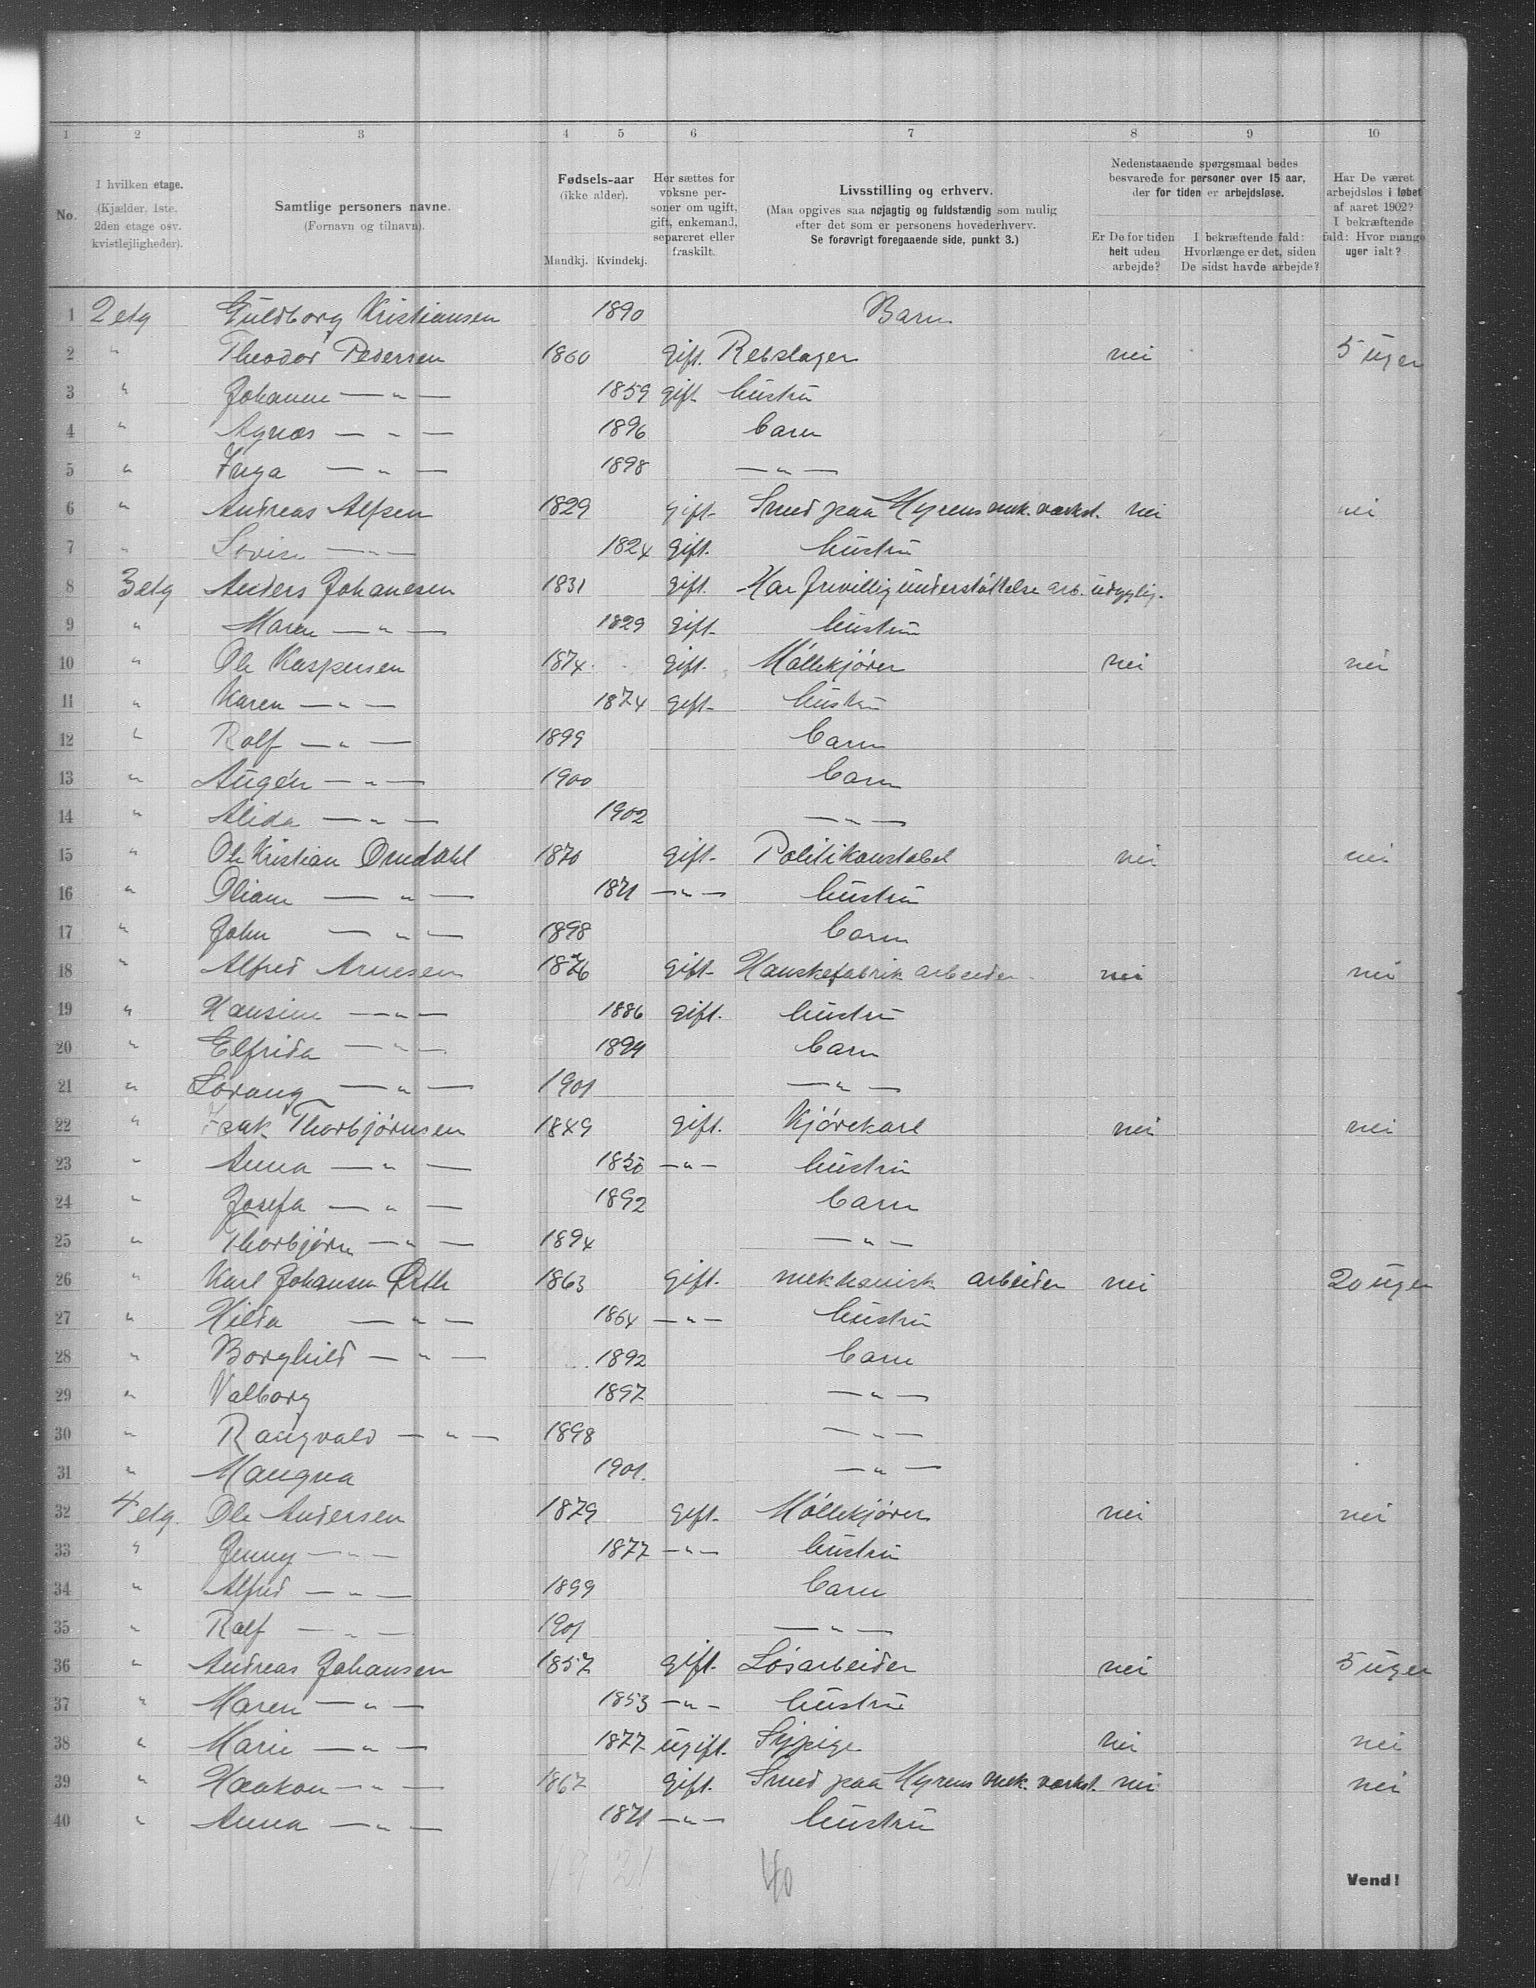 1 2 3 4 5 6 7 8 9 10
No. I hvilken etage. (Kjælder, 1ste. 2den etage osv. kvistlejligheder). Samtlige personers navne. (Fornavn og tilnavn). Fødsels-aar (ikke alder). Mandkj. Kvindekj. Her sættes for voksne personer om ugift, gift, enkemand, separeret eller fraskilt. Livsstilling og erhverv. (Maa opgives saa nøjagtig og fuldstændig som mulig efter det som er personens hovederhverv. Se forøvrigt foregaaende side, punkt 3.) Nedenstaaende spørgsmaal bedes besvarede for personer over 15 aar, der for tiden er arbejdsløse. Er De for tiden helt uden arbejde? I bekræftende fald: Hvorlænge er det, siden De sidst havde arbejde? Har De været arbejdsløs i løbet af aaret 1902? I bekræftende fald: Hvor mange uger ialt?
1 2 etg Guldborg Kristiansen 1890 Barn
2 " Theodor Pedersen 1860 gift. Rebslager nei 5 uger
3 " Johanne — " — 1859 gift hustru
4 " Agnæs — " — 1896 barn
5 " Inga — " — 1898 — " —
6 " Andreas Alfsen 1829 gift. Smed paa Myrens mek. værkst. nei nei
7 " Lovise — " — 1824 gift. hustru
8 3 etg Anders Johanesen 1831 gift. Har frivillig understøttelse arb. udygtig.
9 " Maren — " — 1829 gift. hustru
10 " Ole Kaspersen 1874. gift. Møllekjører nei nei
11 " Karen — " — 1874 gift hustru
12 " Rolf — " — 1899 barn
13 " Augén — " — 1900 barn
14 " Alida — " — 1902 — " —
15 " Ole Kristian Omdahl 1870 gift. Politikonstabel nei nei
16 " Oliane — " — 1871 — " — hustru
17 " John — " — 1898 barn
18 " Alfred Arnesen 1876 gift. Hanskefabrik arbeider nei nei
19 " Hansine — " — 1886 gift. hustru
20 " Elfrida — " — 1899 barn
21 " Lorang — " — 1901 — " —
22 " Isak Thorbjørnsen 1849 gift. Kjørekarl nei nei
23 " Anna — " — 1850 — " — hustru
24 " Josefa — " — 1892 barn
25 " Thorbjørn — " — 1894 — " —
26 " Karl Johansen Østh 1863 gift. mekhanisk arbeider nei 20 uger
27 " Hilda — " — 1864 — " — hustru
28 " Borghild — " — 1892 barn
29 " Valborg 1897 — " —
30 " Rangvald — " — 1898 — " —
31 " Mangna 1901. — " —
32 4 etg. Ole Andersen 1879 gift. Møllekjører nei nei
33 " Jenny — " — 1877 — " — hustru
34 " Alfred — " — 1899 barn
35 " Ralf — " — 1901 — " —
36 " Andreas Johansen 1857 gift. Løsarbeider nei 5 uger
37 " Maren — " — 1853 — " — hustru
38 " Marie — " — 1877 ugift. Sypige nei nei
39 " Haakon — " — 1867 gift. Smed paa Myrens mek. værkst. nei nei
40 " Anna — " — 1871 — " — hustru
19 21 40
Vend!